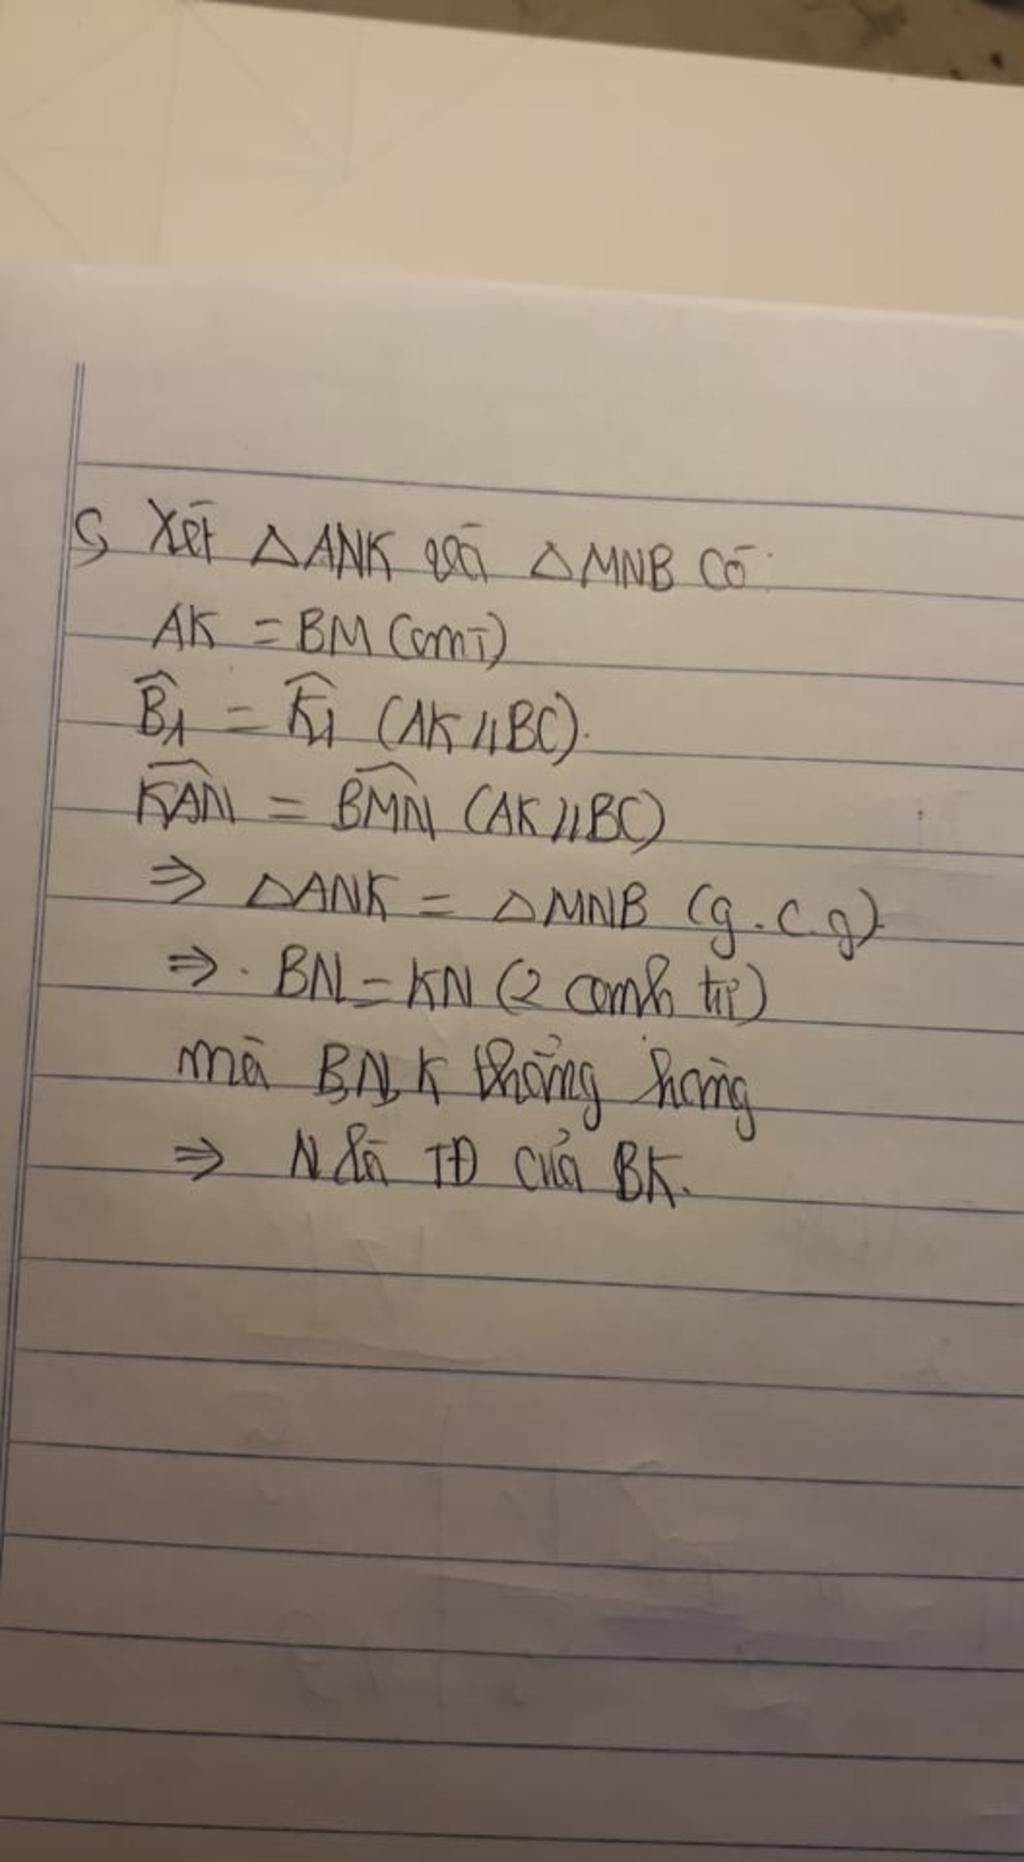 c, Xét △ANK và △MNB có:
AK = BM (cmt)
B̂₁ = K̂₁ (AK // BC).
K̂AN = B̂MN (AK // BC)
⇒ △ANK = △MNB (g.c.g)
⇒ BN = KN (2 cạnh tư)
mà B,N,K thẳng hàng
⇒ N là TĐ của BK.